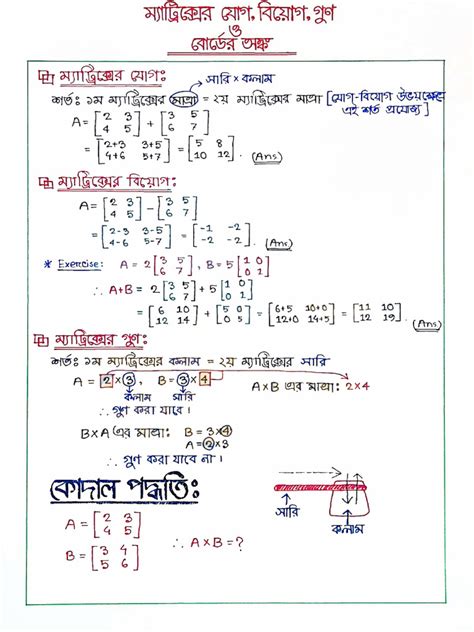 ম্যাট্রিক্সের যোগ, বিয়োগ, গুণ
ও
বোর্ডের অঙ্ক
ম্যাট্রিক্সের যোগঃ
সারি × কলাম
শর্তঃ ১ম ম্যাট্রিক্সের মাত্রা = ২য় ম্যাট্রিক্সের মাত্রা [যোগ-বিয়োগ উভয়ক্ষেত্রে এই শর্ত প্রযোজ্য]
A = [2 3
4 5] + [3 5
6 7]
= [2+3 3+5
4+6 5+7] = [5 8
10 12]. (Ans)
ম্যাট্রিক্সের বিয়োগঃ
A = [2 3
4 5] - [3 5
6 7]
= [2-3 3-5
4-6 5-7] = [-1 -2
-2 -2]. (Ans)
* Exercise: A = 2[3 5
6 7], B = 5[1 0
0 1]
∴ A+B = 2[3 5
6 7] + 5[1 0
0 1]
= [6 10
12 14] + [5 0
0 5] = [6+5 10+0
12+0 14+5] = [11 10
12 19]. (Ans)
ম্যাট্রিক্সের গুণঃ
শর্তঃ ১ম ম্যাট্রিক্সের কলাম = ২য় ম্যাট্রিক্সের সারি
A = 2×3, B = 3×4 A×B এর মাত্রা: 2×4
কলাম সারি
∴ গুণ করা যাবে।
B×A এর মাত্রা: B = 3×4
A = 2×3
∴ গুণ করা যাবে না।
কোদাল পদ্ধতিঃ
সারি কলাম
A = [2 3
4 5]
B = [3 4
5 6] ∴ A×B = ?